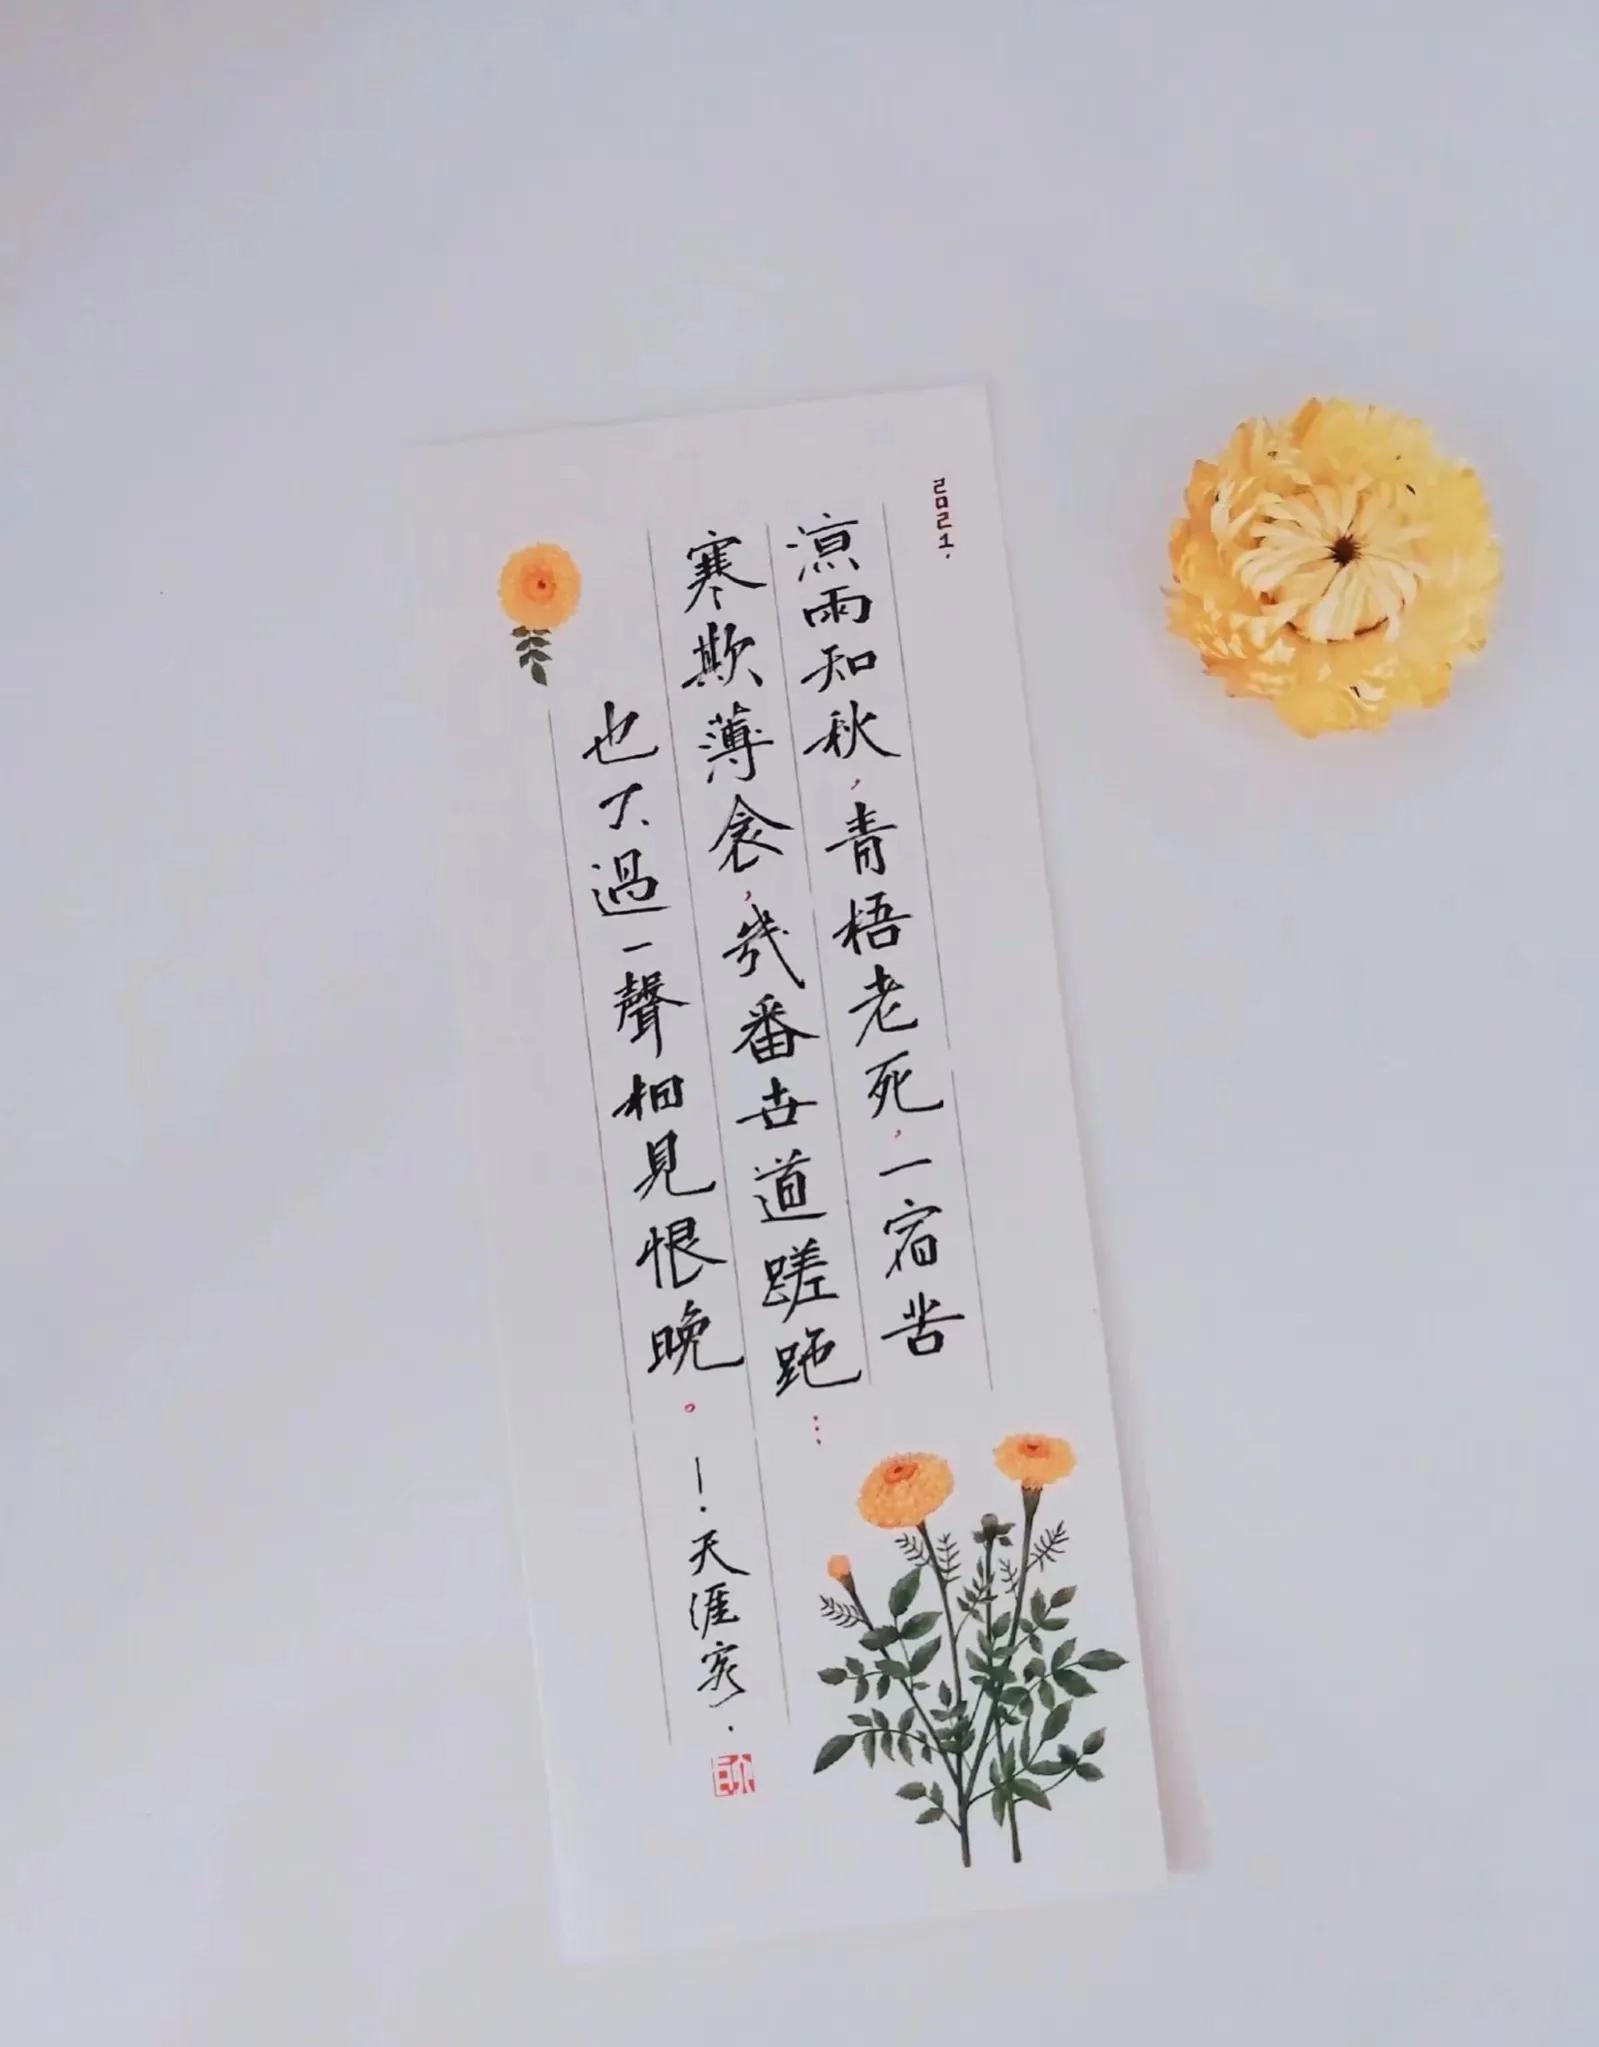 2021.
涼雨知秋，青梧老死，一宿苦
寒欺薄衾，幾番世道蹉跎…
也不過一聲相見恨晚。
—·天涯客·